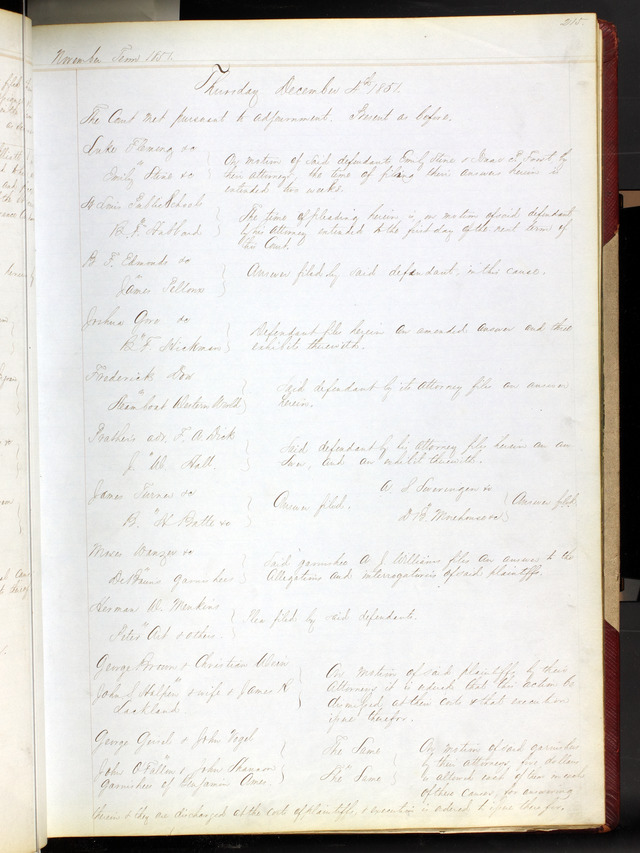 215.
November Term 1851.
Thursday December 4th 1851.
The Court met pursuant to adjournment. Present as before.
Luke Fleming &c
vs
Emily Stine &c
On motion of said defendant Emily Stine & Isaac E. Frost, by
their attorneys, the time of filing their answers herein is
extended two weeks.
St Louis Public Schools
vs
B. F. Hubbard
The time of pleading herein, is, on motion of said defendant
by his Attorney extended to the first day of the next term of
this Court.
B. F. Edmonds &c
vs
James Fellows
Answer filed by said defendant, in this cause.
Joshua &c
vs
B. F. Hickman
Defendant files herein an amended answer and three
exhibits therewith.
Frederick
vs
Steamboat Western World
Said defendant by its Attorney files an answer
herein.
adr. F. A. Dick
vs
J. W. Hall
Said defendant by his Attorney files herein an an-
swer, and an exhibit therewith.
James Turner &c
vs
B. H. Battle &c
Answer filed.
A. S. &c
vs
D. B. Morehouse &c
Answer filed.
Moses Wanzer &c
vs
garnishees
Said garnishee A. J. Williams files an answer to the
Allegations and interrogatories of said plaintiffs.
Herman W.
vs
Peter & others
Plea filed by said defendants.
George Brown & Christian
vs
John S. & wife & James R.
Lackland
On motion of said plaintiffs, by their
Attorneys it is ordered that this action be
dismissed, at their costs & that execution
issue therefor.
George & John Vogel
vs
John O'Fallon & John Shannon
garnishees of Benjamin Ames
The Same
vs
The Same
On motion of said garnishees
by their attorneys, five dollars
is allowed each of them in each
of these causes, for answering
herein & they are discharged at the costs of plaintiffs, & execution is ordered to issue therefor.